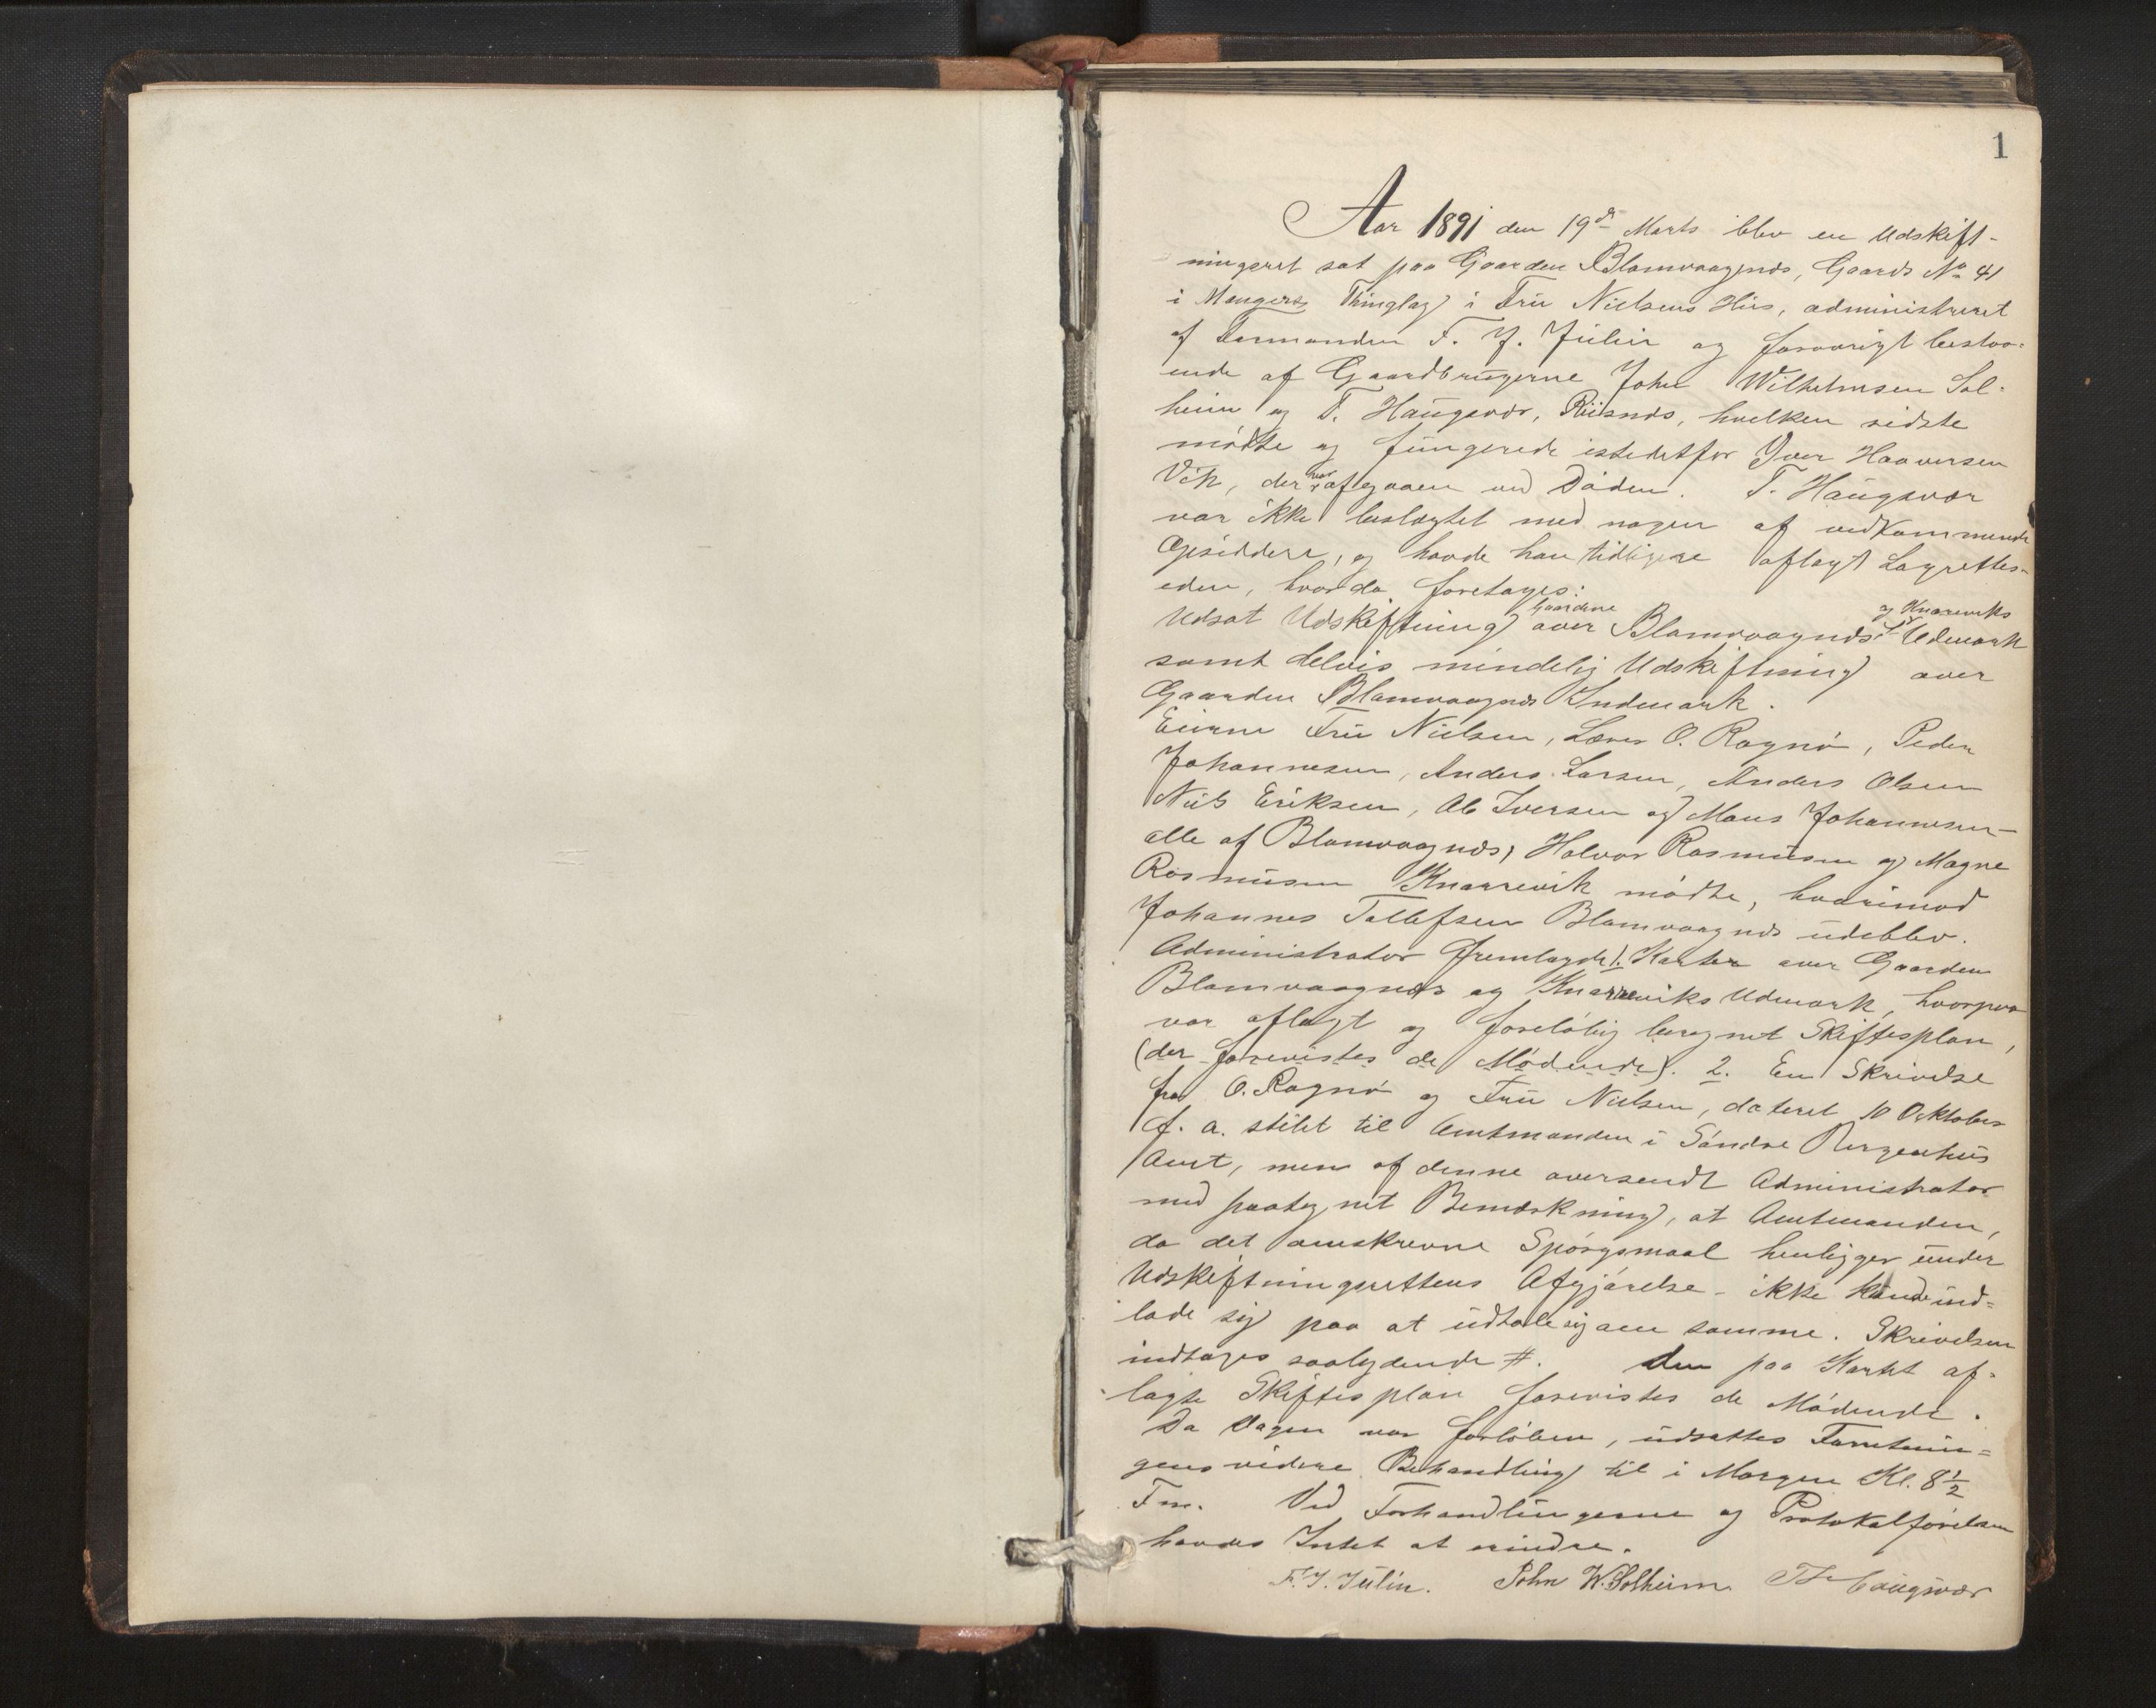 1
Aar 1891 den 19de Marts blev en Udskift-
ningsret sat paa Gaarden Blomvaagnæs, Gaards No 41
i Mangers Thinglag i Fru Nielsens Hus, administreret
af Formanden F. J. Julin og forøvrigt bestaa-
ende af Gaardbrugerne John Wilhelmsen Sol-
heim og T. Haugsvær, Risnæs, hvilken sidste
mødte og fungerede istedetfor Iver Haaversen
Vik, der har afgaaen ved Døden. T. Haugsvær
var ikke beslægtet med nogen af vedkommende
Opsiddere, og havde han tidligere aflagt Lagrettes-
eden, hvorda foretages:
Udsat Udskiftning over Gaardene Blomvaagnæs's og Knarreviks Udmark
samt delvis mindelig Udskiftning over
Gaarden Blomvaagnæs Indmark.
Eierne Fru Nielsen, Lærer O. Ragnø, Peder
Johannesen, Anders Larsen, Anders Olsen
Nils Eriksen, Ole Iversen og Mons Johannesen -
alle af Blomvaagnæs, Halvor Rasmusen og Magne
Rasmusen Knarrevik mødte, hvorimod
Johannes Tollefsen Blomvaagnæs udeblev.
Administrator fremlagde 1. Karter over Gaarden
Blomvaagnæs og Knarreviks Udmark, hvorpaa
var aflagt og foreløbig beregnet Skiftesplan,
(der forevistes de Mødende). 2. En Skrivelse
fra O. Ragnø og Fru Nielsen, dateret 10 Oktober
f. a. stilet til Amtmanden i Søndre Bergenhus
Amt, men af denne oversendt Administrator
med paategnet Bemærkning, at Amtmanden,
da det omskrevne Spørgsmaal henligger under
Udskiftningsrettens Afgjørelse - ikke kunde ind-
lade sig paa at udtale sig om samme. Skrivelsen
indtages saalydende #. Den paa Kartet af-
lagte Skiftesplan forevistes de Mødende.
Da Dagen var forløben, udsattes Forretnin-
gens videre Behandling til i Morgen Kl. 8½
Fm. Ved Forhandlingerne og Protokolførelsen
havdes Intet at erindre.
F. J. Julin. John W. Solheim T Haugsvær